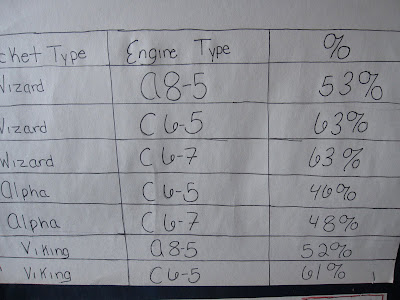 cket Type Engine Type %
Wizard a8-5 53%
Wizard C6-5 63%
Wizard C6-7 63%
Alpha C6-5 46%
Alpha C6-7 48%
Viking a8-5 52%
Viking C6-5 61%